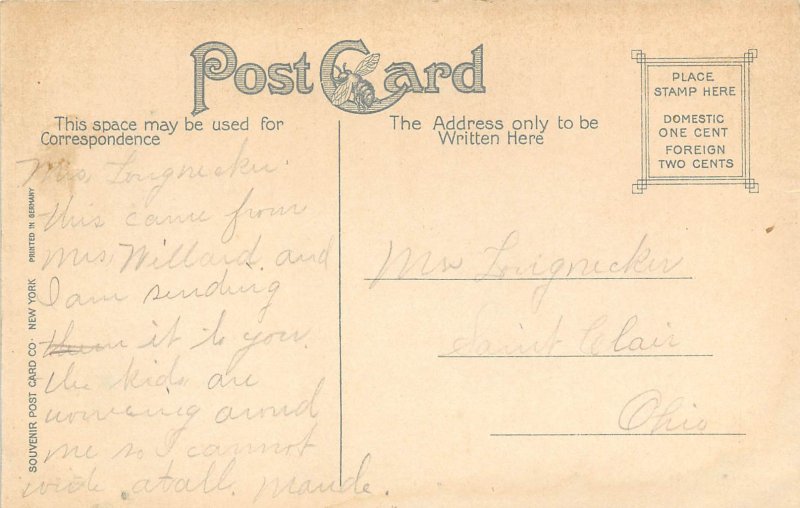 Post Card
This space may be used for
Correspondence
The Address only to be
Written Here
PLACE
STAMP HERE
DOMESTIC
ONE CENT
FOREIGN
TWO CENTS
SOUVENIR POST CARD CO. NEW YORK PRINTED IN GERMANY
Mrs Longnecker.
this came from
Mrs, Willard and
I am sending
them it to you.
the kids are
around
me so I cannot
atall. Maude.
Mrs Longnecker
Saint Clair
Ohio